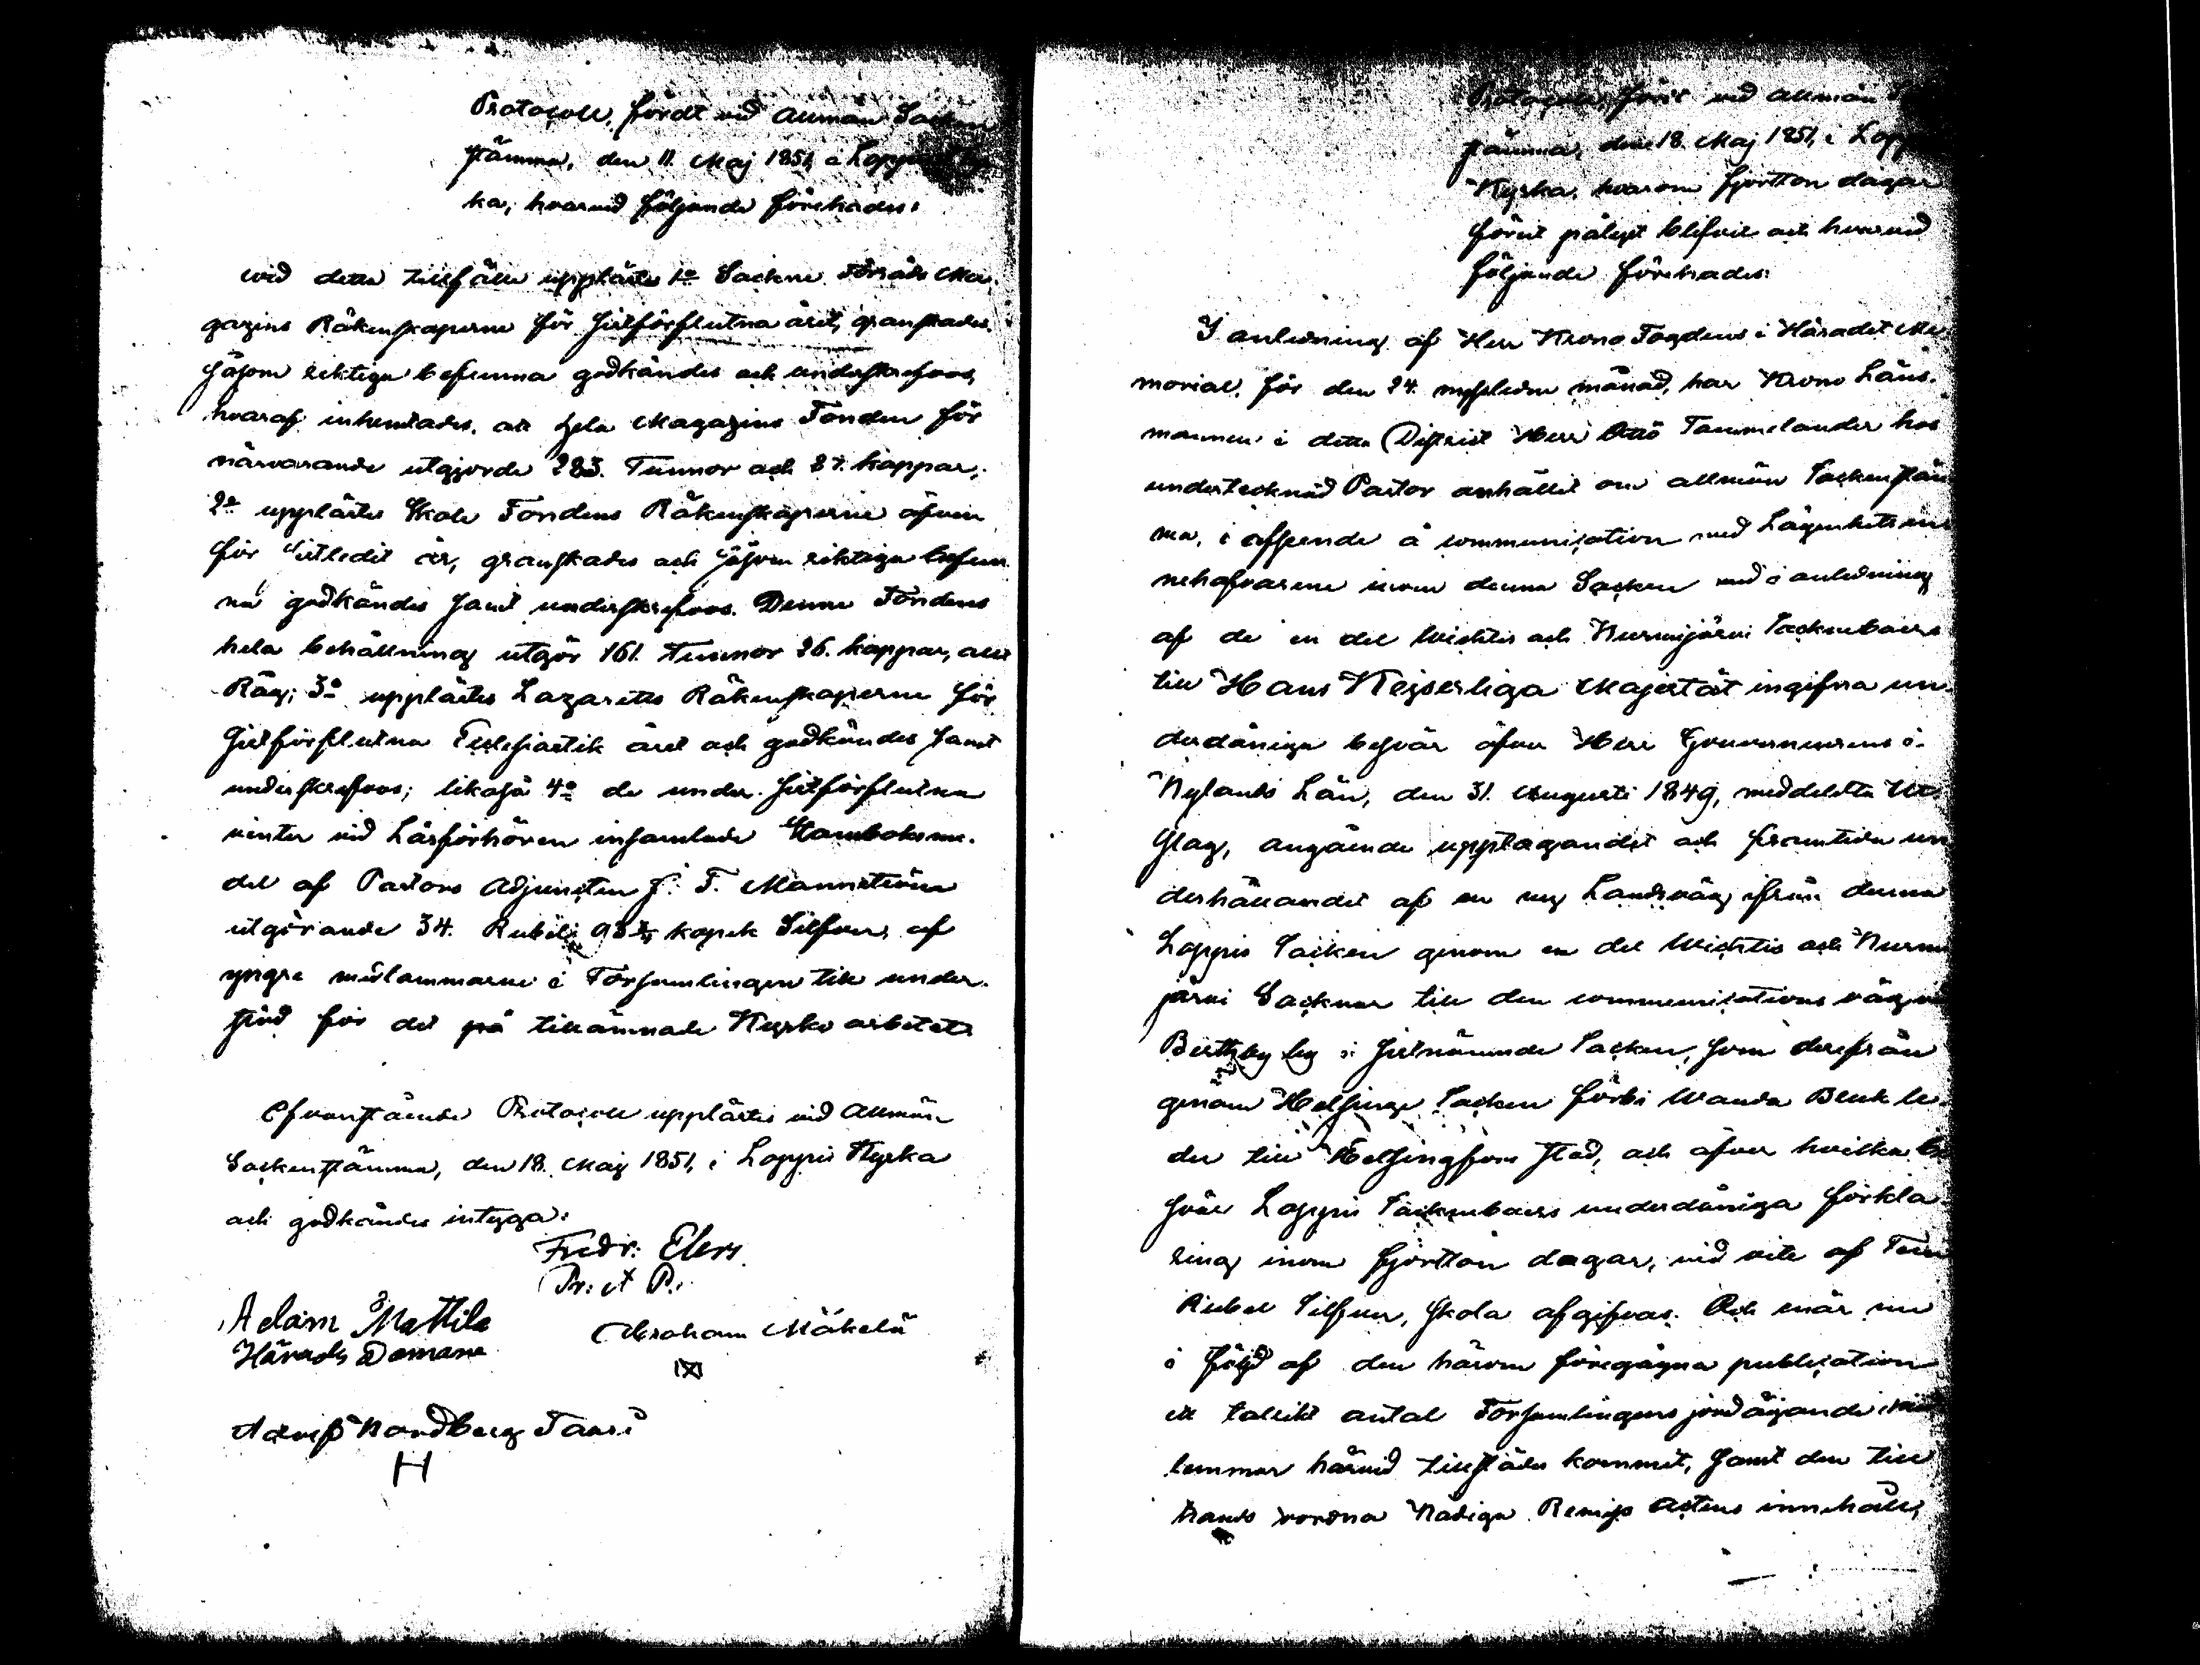 Protocoll, fördt vid Allmän Sockne
stämma, den 11. Maj 1851, i Loppis Kyr
ka, hvarvid följande förehades:
Wid detta tillfälle upplästes 1o Sockne Förråds Ma-
gazins Räkenskaperne för sistförflutna året, granskades,
såsom riktiga befunna godkändes och underskrefvos,
hvaraf inhemtades, att hela Magazins Fonden för
närvarande utgjorde 283. Tunnor och 27. kappar;
2o upplästes Skole Fondens Räkenskaperne äfven
för sistledit år, granskades och såsom riktiga befun
na godkändes samt underskrefvos. Denne Fondens
hela behållning utgör 161. Tunnor 26. kappar, allt
Råg; 3o upplästes Lazaretts Räkenskaperne för
sistförflutna Ecclesiastik året och godkändes samt
underskrefvos; likaså 4o de under sistförflutna
vinter vid Läsförhören insamlade Stambok­sme-
del af Pastors Adjuncten J. F. Mannström
utgörande 34. Rubel 93 kopek Silfver, af
yngre medlemmarne i Församlingen till under-
stöd för det på tillämnade Kyrko arbetet.
Ofvanstående Protocoll upplästes vid Allmän
Sockenstämma, den 18. Maj 1851, i Loppis Kyrka
och godkändes intyga:
Fredr: Elers
Pr: et P.
Adam Mattila
Härads Domare
Abraham Mäkelä
Adolf Nordberg Tauri
H
Protocoll, fördt vid Allmän
stämma, den 18. Maj 1851, i Lopp
Kyrka, hvarom fjorton dagar
förut pålyst blifvit och hvarvid
följande förehades:
I anledning af Herr Krono Fogdens i Häradet Me-
morial, för den 24. nystledne månad, har Krono Läns-
mannen i detta District Herr Otto Tammelander hos
undertecknad Pastor anhållit om allmän Sockenstäm
ma, i afseende å communication med Lägenhets in
nehafvarene inom denna Socken med i anledning
af de en del Wichtis och Nurmijärvi Sockneboers
till Hans Kejserliga Majestät ingifna un-
derdåniga besvär öfver Herr Gouverneurens i
Nylands Län, den 31. Augusti 1849, meddelta Ut
slag, angående upptagandet och framtida un
derhållandet af en ny Landsväg ifrån denna
Loppis Socken genom en del Wichtis och Nurmi
järvi Socknar till den communications vägen
by i sistnämnde Socken, som derifrån
genom Helsinge Socken förbi Wanda Bruk le-
der till Helsingfors stad, och öfver hvilka be
svär Loppis Sockneboers underdåniga förkla-
ring inom fjorton dagar, vid vite af Tem
Rubel Silfver, skola afgifvas. Och när nu
i följd af den härom föregågna publication
ett talrikt antal Församlingens jordägande med
lemmar härvid tillstädes kommit, samt den till
hands vordna Nådiga Remiss Actens innehåll,